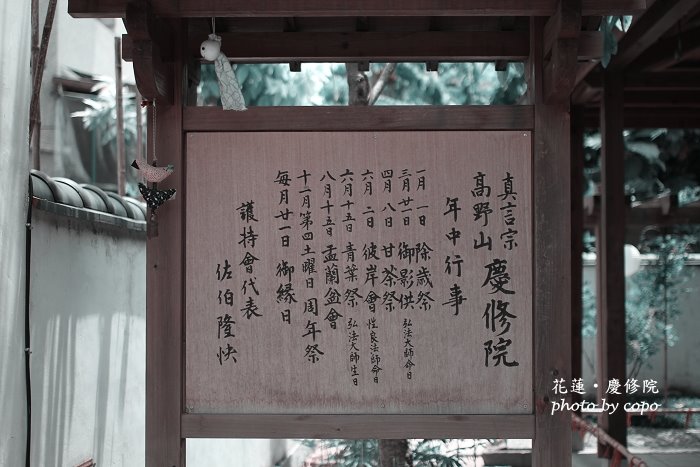 真言宗
高野山 慶修院
年中行事
一月一日 除歳祭
三月廿一日 御影供 弘法大師命日
四月八日 甘茶祭
六月二日 彼岸會 性良法師命日
六月十五日 青葉祭 弘法大師生日
八月十五日 盂蘭盆會
十一月第四土曜日 周年祭
每月廿一日 御縁日
護持會代表
佐伯隆快
花蓮・慶修院
photo by copo